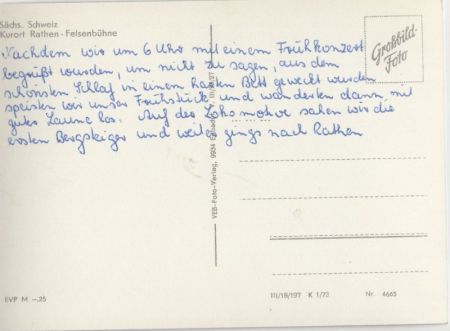 Sächs. Schweiz
Kurort Rathen - Felsenbühne
Nachdem wir um 6 Uhr mit einem Frühkonzert
begrüßt wurden, um nicht zu sagen, aus dem
schönsten Schlaf in einem harten Bett geweckt wurden
speisten wir unser Frühstück und wanderten dann mit
guter Laune los. Auf der Lokomotive sahen wir die
ersten Bergsteiger und weiter gings nach Rathen
Großbild-
Foto
VEB-Foto-Verlag, 9934
EVP M -,25
III/18/197 K 1/73
Nr. 4665